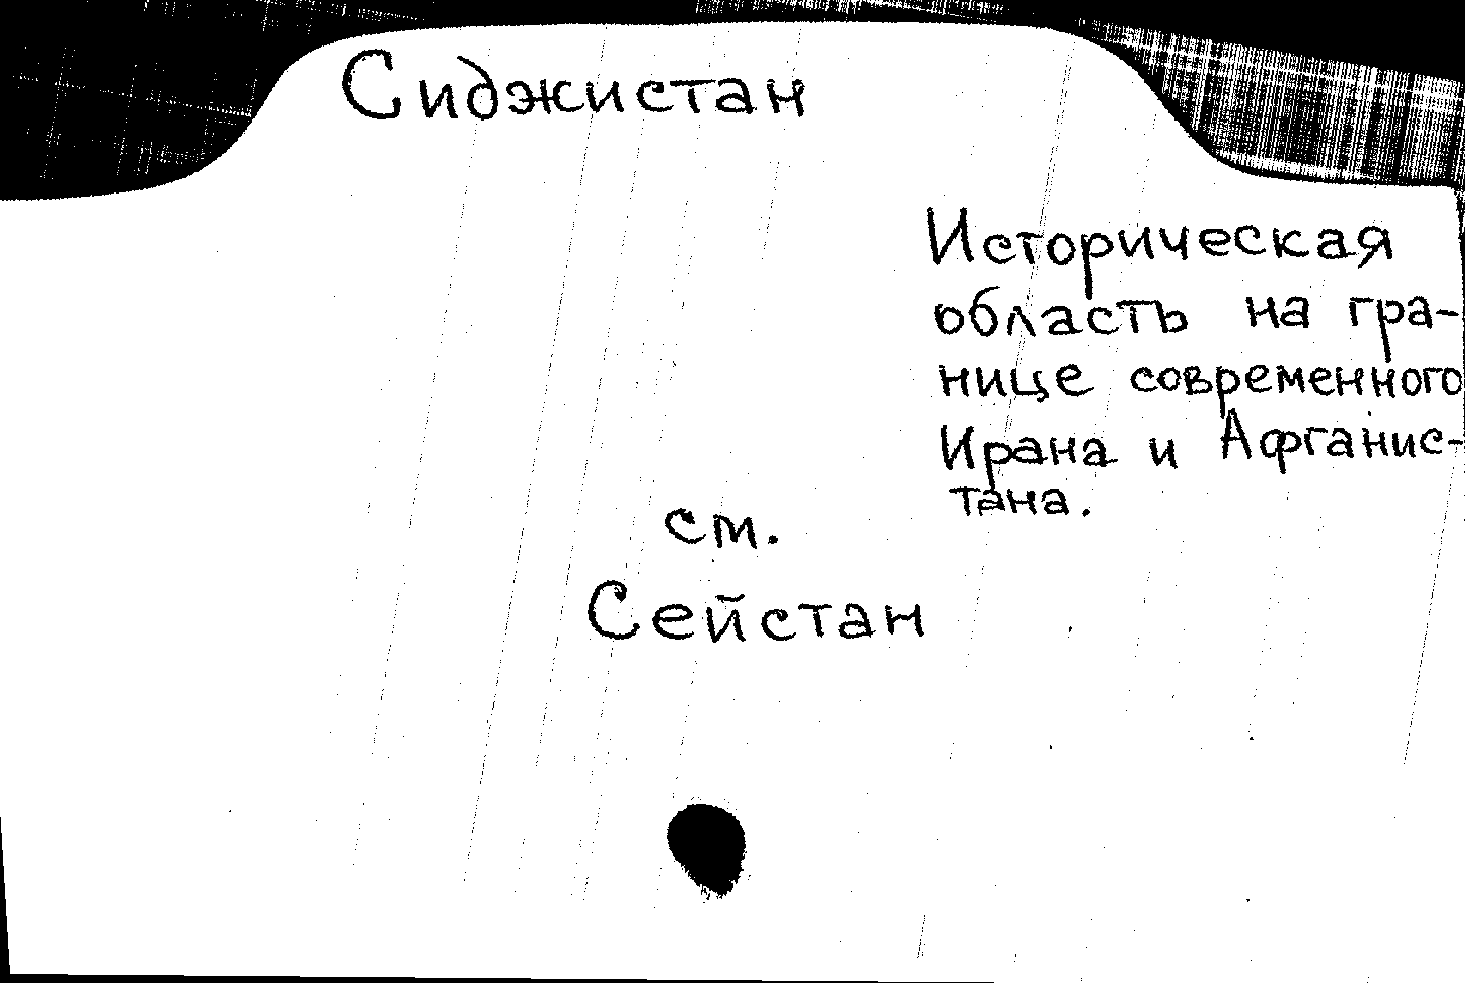 Сиджистан
Историческая
область на гра-
нице современного
Ирана и Афганис-
тана.
см.
Сейстан